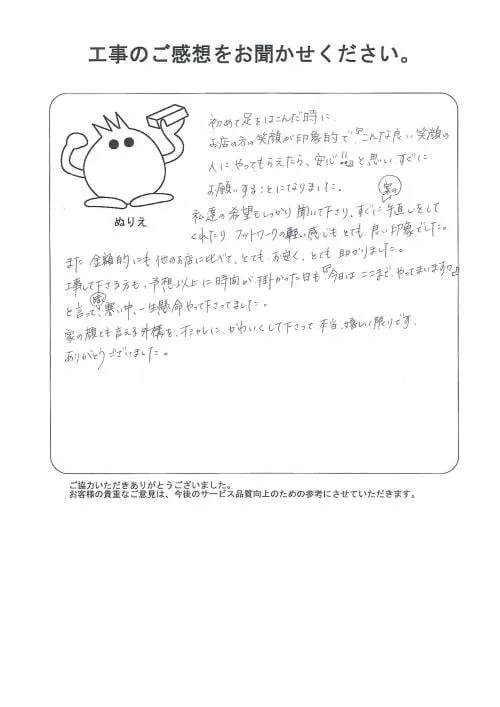 工事のご感想をお聞かせください。
ぬりえ
初めて足をはこんだ時に
お店の方の笑顔が印象的で『こんな良い笑顔の
人にやってもらえたら、安心!!』と思い、すぐに
お願いすることになりました。
私達の希望もしっかり聞いて下さり、すぐに手直しをして
くれたり フットワークの軽い感じも とても 良い印象でした。
また 金額的にも 他のお店に比べて、とても お安く、とても 助かりました。
工事して下さる方も、予想以上に時間が掛かった日も『今日は ここまで やってまいます。』
と言って、暗い 寒い中、一生懸命やって下さってました。
家の顔とも言える外構を、オシャレに、かわいくして下さって 本当 嬉しい限りです。
ありがとうございました。
ご協力いただきありがとうございました。
お客様の貴重なご意見は、今後のサービス品質向上のための参考にさせていただきます。